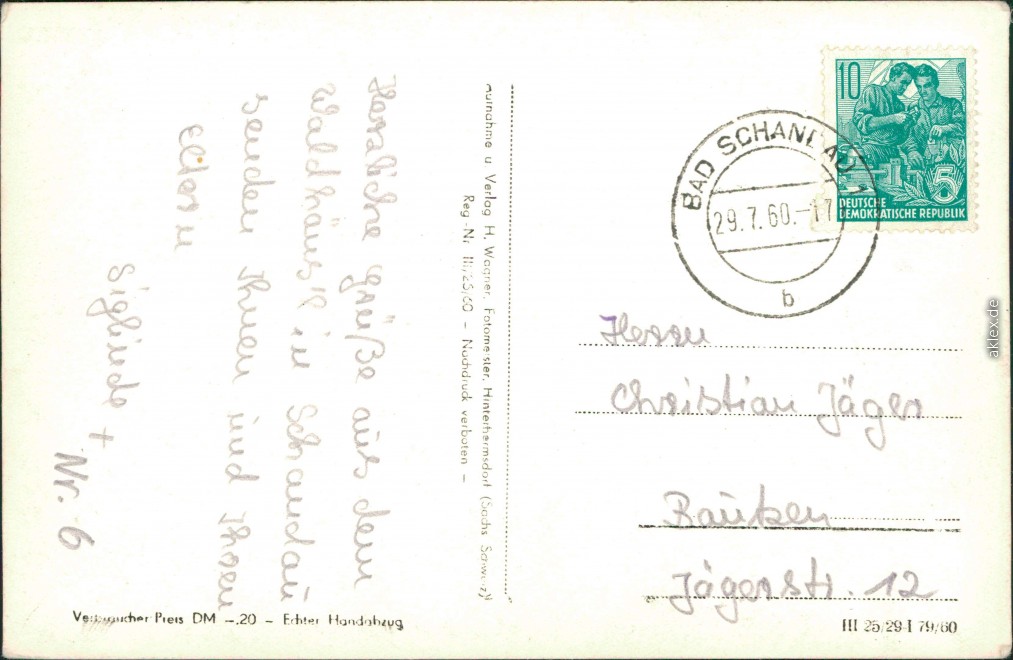 Herzliche Grüße aus dem
Waldhäus'l in Schandau
senden Ihnen und Ihren
Eltern
Siglinde +
Nr. 6
Aufnahme u Verlag H. Wagner, Fotomeister, Hinterhermsdorf (Sächs Schweiz)
Reg-Nr III/25/60 – Nachdruck verboten –
Verbraucher Preis DM –.20 – Echter Handabzug
BAD SCHANDAU 1
29.7.60.–17
b
10
5
DEUTSCHE
DEMOKRATISCHE REPUBLIK
Herrn
Christian Jäger
Bautzen
Jägerstr. 12
III 25/29-I 79/60
aklex.de